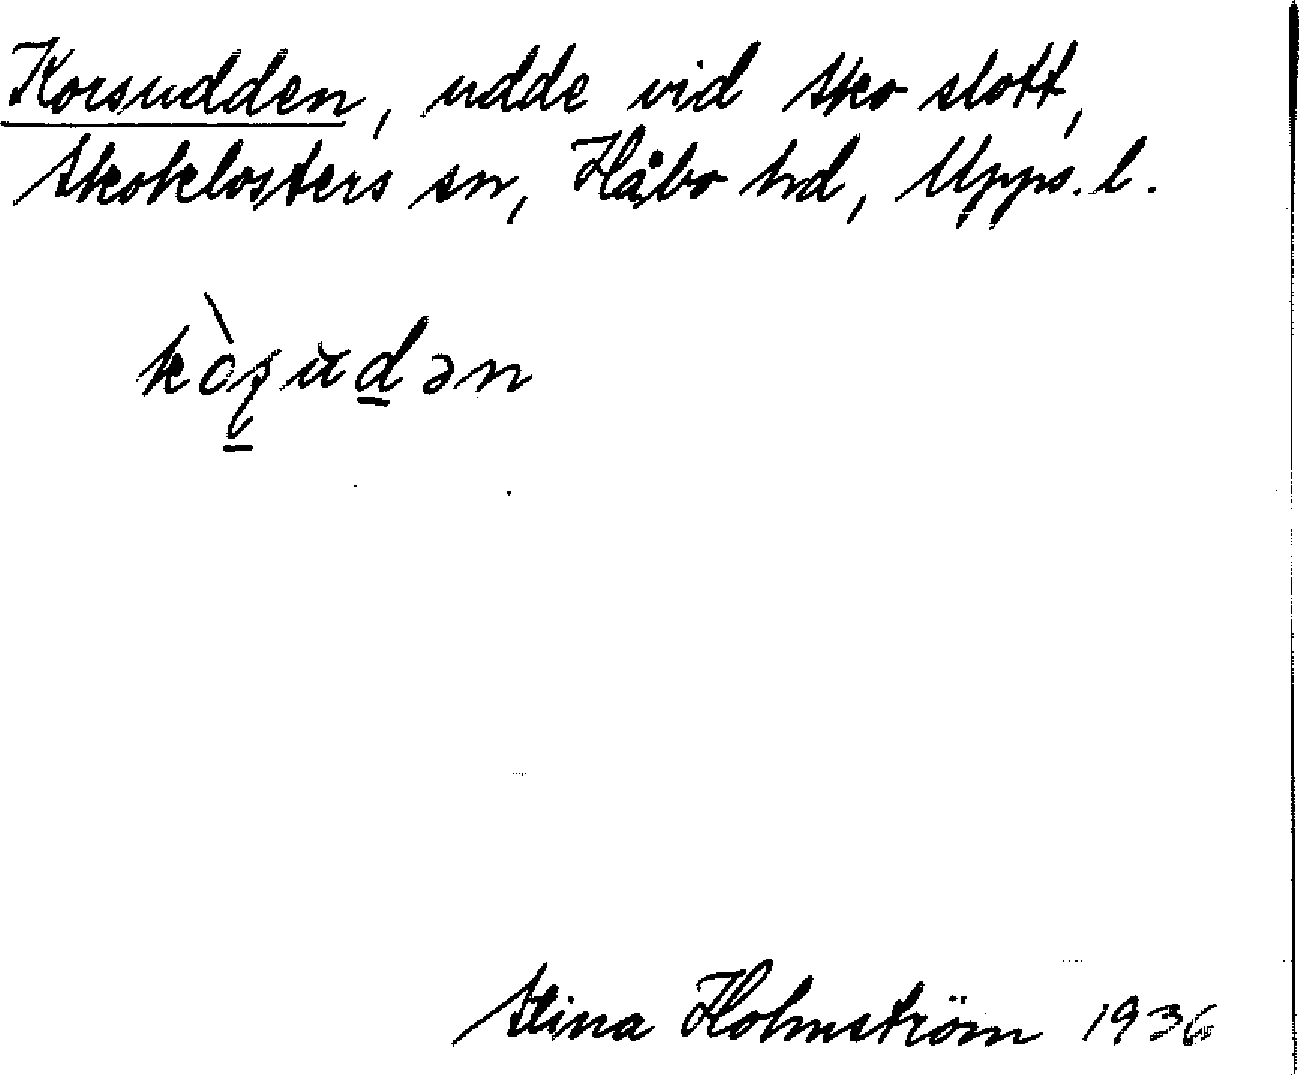 Korsudden, udde vid Sko slott,
Skoklosters sn, Håbo hd, Upps. l.
Stina Holmström 1936